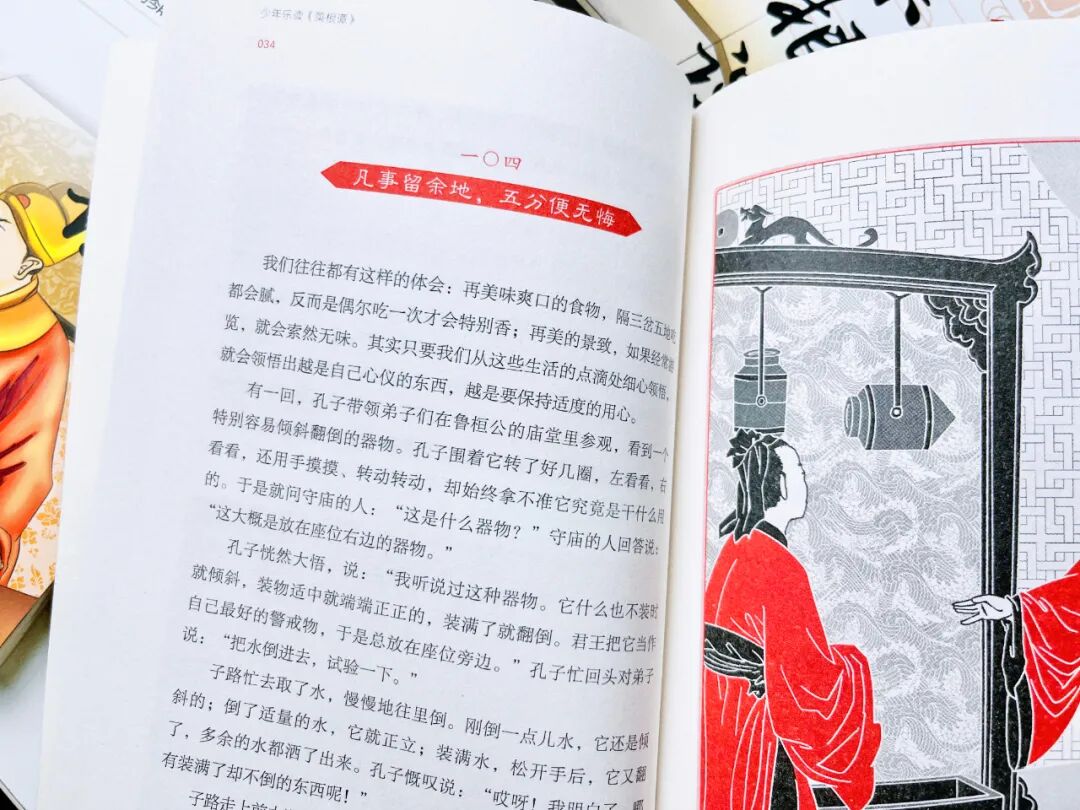 少年乐读《菜根谭》
034
一〇四
凡事留余地，五分便无悔
我们往往都有这样的体会：再美味爽口的食物，隔三岔五地吃
都会腻，反而是偶尔吃一次才会特别香；再美的景致，如果经常游
览，就会索然无味。其实只要我们从这些生活的点滴处细心领悟，
就会领悟出越是自己心仪的东西，越是要保持适度的用心。
有一回，孔子带领弟子们在鲁桓公的庙堂里参观，看到一个
特别容易倾斜翻倒的器物。孔子围着它转了好几圈，左看看，右
看看，还用手摸摸、转动转动，却始终拿不准它究竟是干什么用
的。于是就问守庙的人：“这是什么器物？”守庙的人回答说：
“这大概是放在座位右边的器物。”
孔子恍然大悟，说：“我听说过这种器物。它什么也不装时
就倾斜，装物适中就端端正正的，装满了就翻倒。君王把它当作
自己最好的警戒物，于是总放在座位旁边。”孔子忙回头对弟子
说：“把水倒进去，试验一下。”
子路忙去取了水，慢慢地往里倒。刚倒一点儿水，它还是倾
斜的；倒了适量的水，它就正立；装满水，松开手后，它又翻
了，多余的水都洒了出来。孔子慨叹说：“哎呀！我明白了，哪
有装满了却不倒的东西呢！”
子路走上前